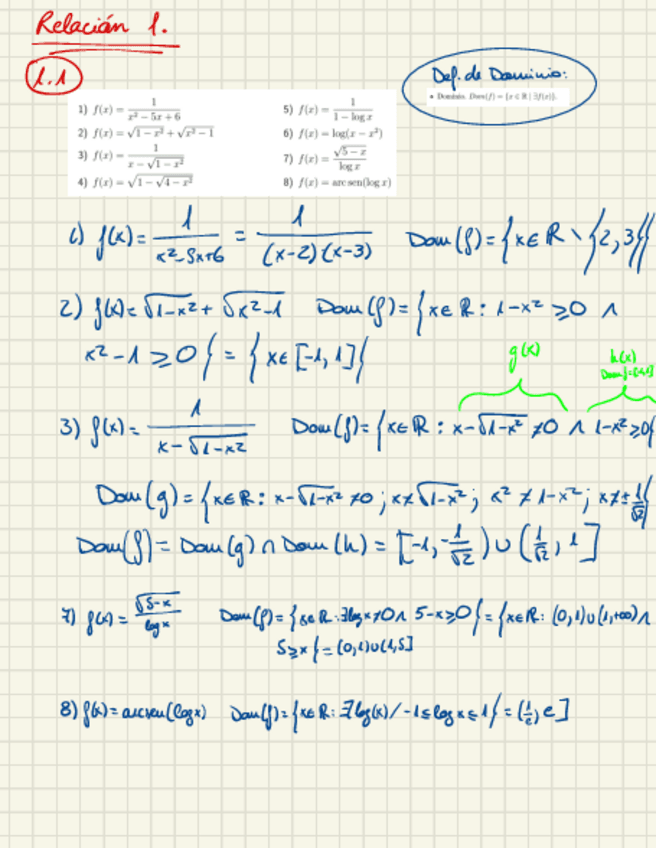 Relación 1.
1.1
Def. de Dominio:
• Dominio. Dom(f) = {x ∈ ℝ | ∃f(x)}.
1) f(x) = 1/(x² − 5x + 6)
2) f(x) = √(1 − x²) + √(x² − 1)
3) f(x) = 1/(x − √(1 − x²))
4) f(x) = √(1 − √(4 − x²))
5) f(x) = 1/(1 − log x)
6) f(x) = log(x − x²)
7) f(x) = √(5 − x)/log x
8) f(x) = arc sen(log x)
1) f(x) = 1/(x²-5x+6) = 1/((x-2)(x-3)) Dom(f) = {x∈ℝ \ {2,3}}
2) f(x) = √(1-x²) + √(x²-1) Dom(f) = {x∈ℝ : 1-x² ≥0 ∧
x²-1 ≥0} = {x∈[-1,1]}
g(x) h(x)
3) f(x) = 1/(x-√(1-x²)) Dom(f) = {x∈ℝ : x-√(1-x²) ≠0 ∧ 1-x²≥0}
Dom(g) = {x∈ℝ : x-√(1-x²) ≠0 ; x≠√(1-x²) ; x² ≠ 1-x² ; x≠± 1/√2}
Dom(f) = Dom(g) ∩ Dom(h) = [-1, -1/√2) ∪ (1/√2, 1]
7) f(x) = √(5-x)/log x Dom(f) = {x∈ℝ : ∃log x ≠0 ∧ 5-x≥0} = {x∈ℝ : (0,1)∪(1,+∞) ∧
5≥x} = (0,1)∪(1,5]
8) f(x) = arcsen(log x) Dom(f) = {x∈ℝ : ∃log(x) / -1≤log x≤1} = (1/e, e]